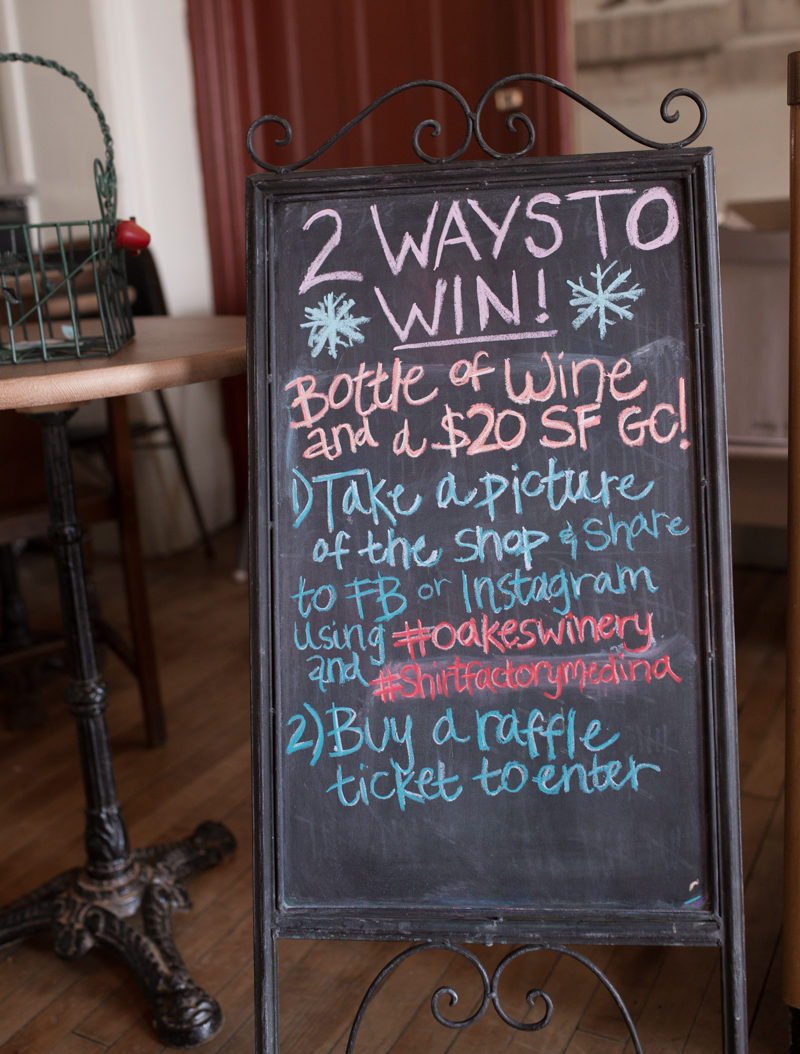 2 WAYS TO
WIN!
Bottle of Wine
and a $20 SF GC!
1) Take a picture
of the shop & Share
to FB or Instagram
using #oakeswinery
and #Shirtfactorymedina
2) Buy a raffle
ticket to enter